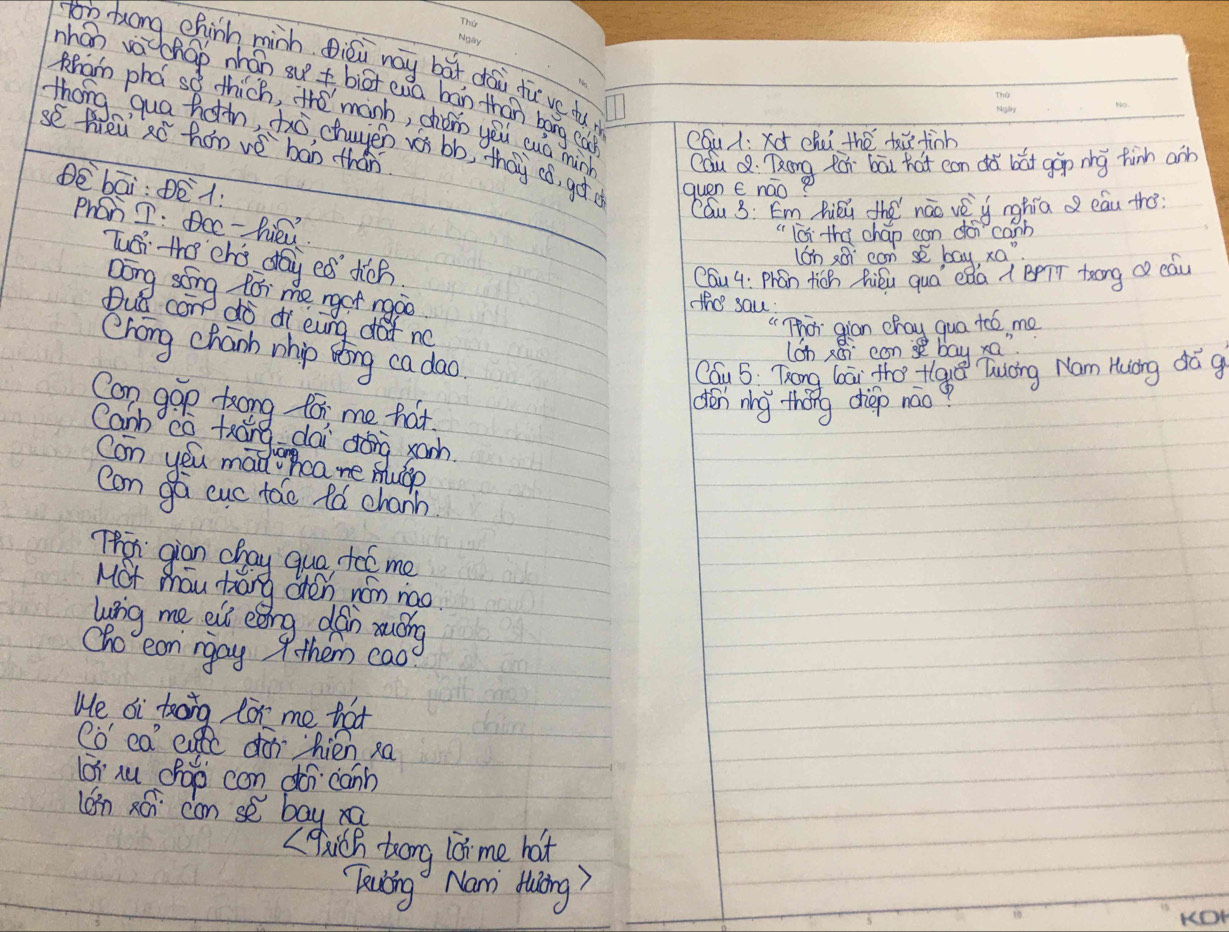 tôn trọng chính mình. Điều này bắt đầu từ vc tự
nhận và chấp nhận sự ≠ biệt của bản thân bằng cách
khám phá sở thích, thế mạnh, điểm yếu của mình
thông qua hđtn, trò chuyện với bb, thầy cô, gđ
sẽ hiểu rõ hơn về bản thân.
Đề bài: Đề 1:
Phần I: Đọc - hiểu.
Tuổi thơ chở đầy cổ tích.
Dòng sông lời mẹ ngọt ngào
Đưa con đò đi cùng đất nc
Chòng chành nhịp võng ca dao.
Con gặp trong lời mẹ hát.
Cánh cò trắng dải đồng xanh.
Con yêu màu vàng hoa mướp
Con gà cục tác lá chanh.
Thời gian chạy qua tóc mẹ
Một màu trắng đến nôn nao.
Lưng mẹ cứ còng dần xuống
Cho con ngày 1 thêm cao.
Mẹ ơi trong lời mẹ hát
Có cả cuộc đời hiện ra
Lời ru chắp con đôi cánh
Lớn rồi con sẽ bay xa
<Trích trong lời mẹ hát
Trương Nam Hương>
Thứ
Ngày
No.
Thứ
Ngày
No.
Câu 1: Xđ chủ thể trữ tình
Câu 2: Trong lời bài hát con đã bắt gặp nhg hình ảnh
quen € nào?
Câu 3: Em hiểu thế nào về ý nghĩa 2 câu thơ:
"Lời thơ chắp con đôi cánh
Lớn rồi con sẽ bay xa".
Câu 4: Phân tích hiệu quả của 1 BPTT trong 2 câu
thơ sau:
"Thời gian chạy qua tóc mẹ
Lớn rồi con sẽ bay xa".
Câu 5: Trong bài thơ t/giả Trương Nam Hương đã g
đến nhg thông điệp nào?
KDH